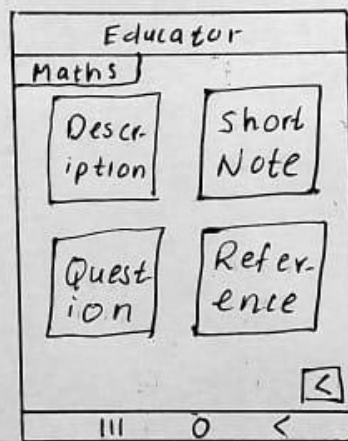 Educator
Maths
Descr-
iption
Short
Note
Quest
ion
Refer-
ence